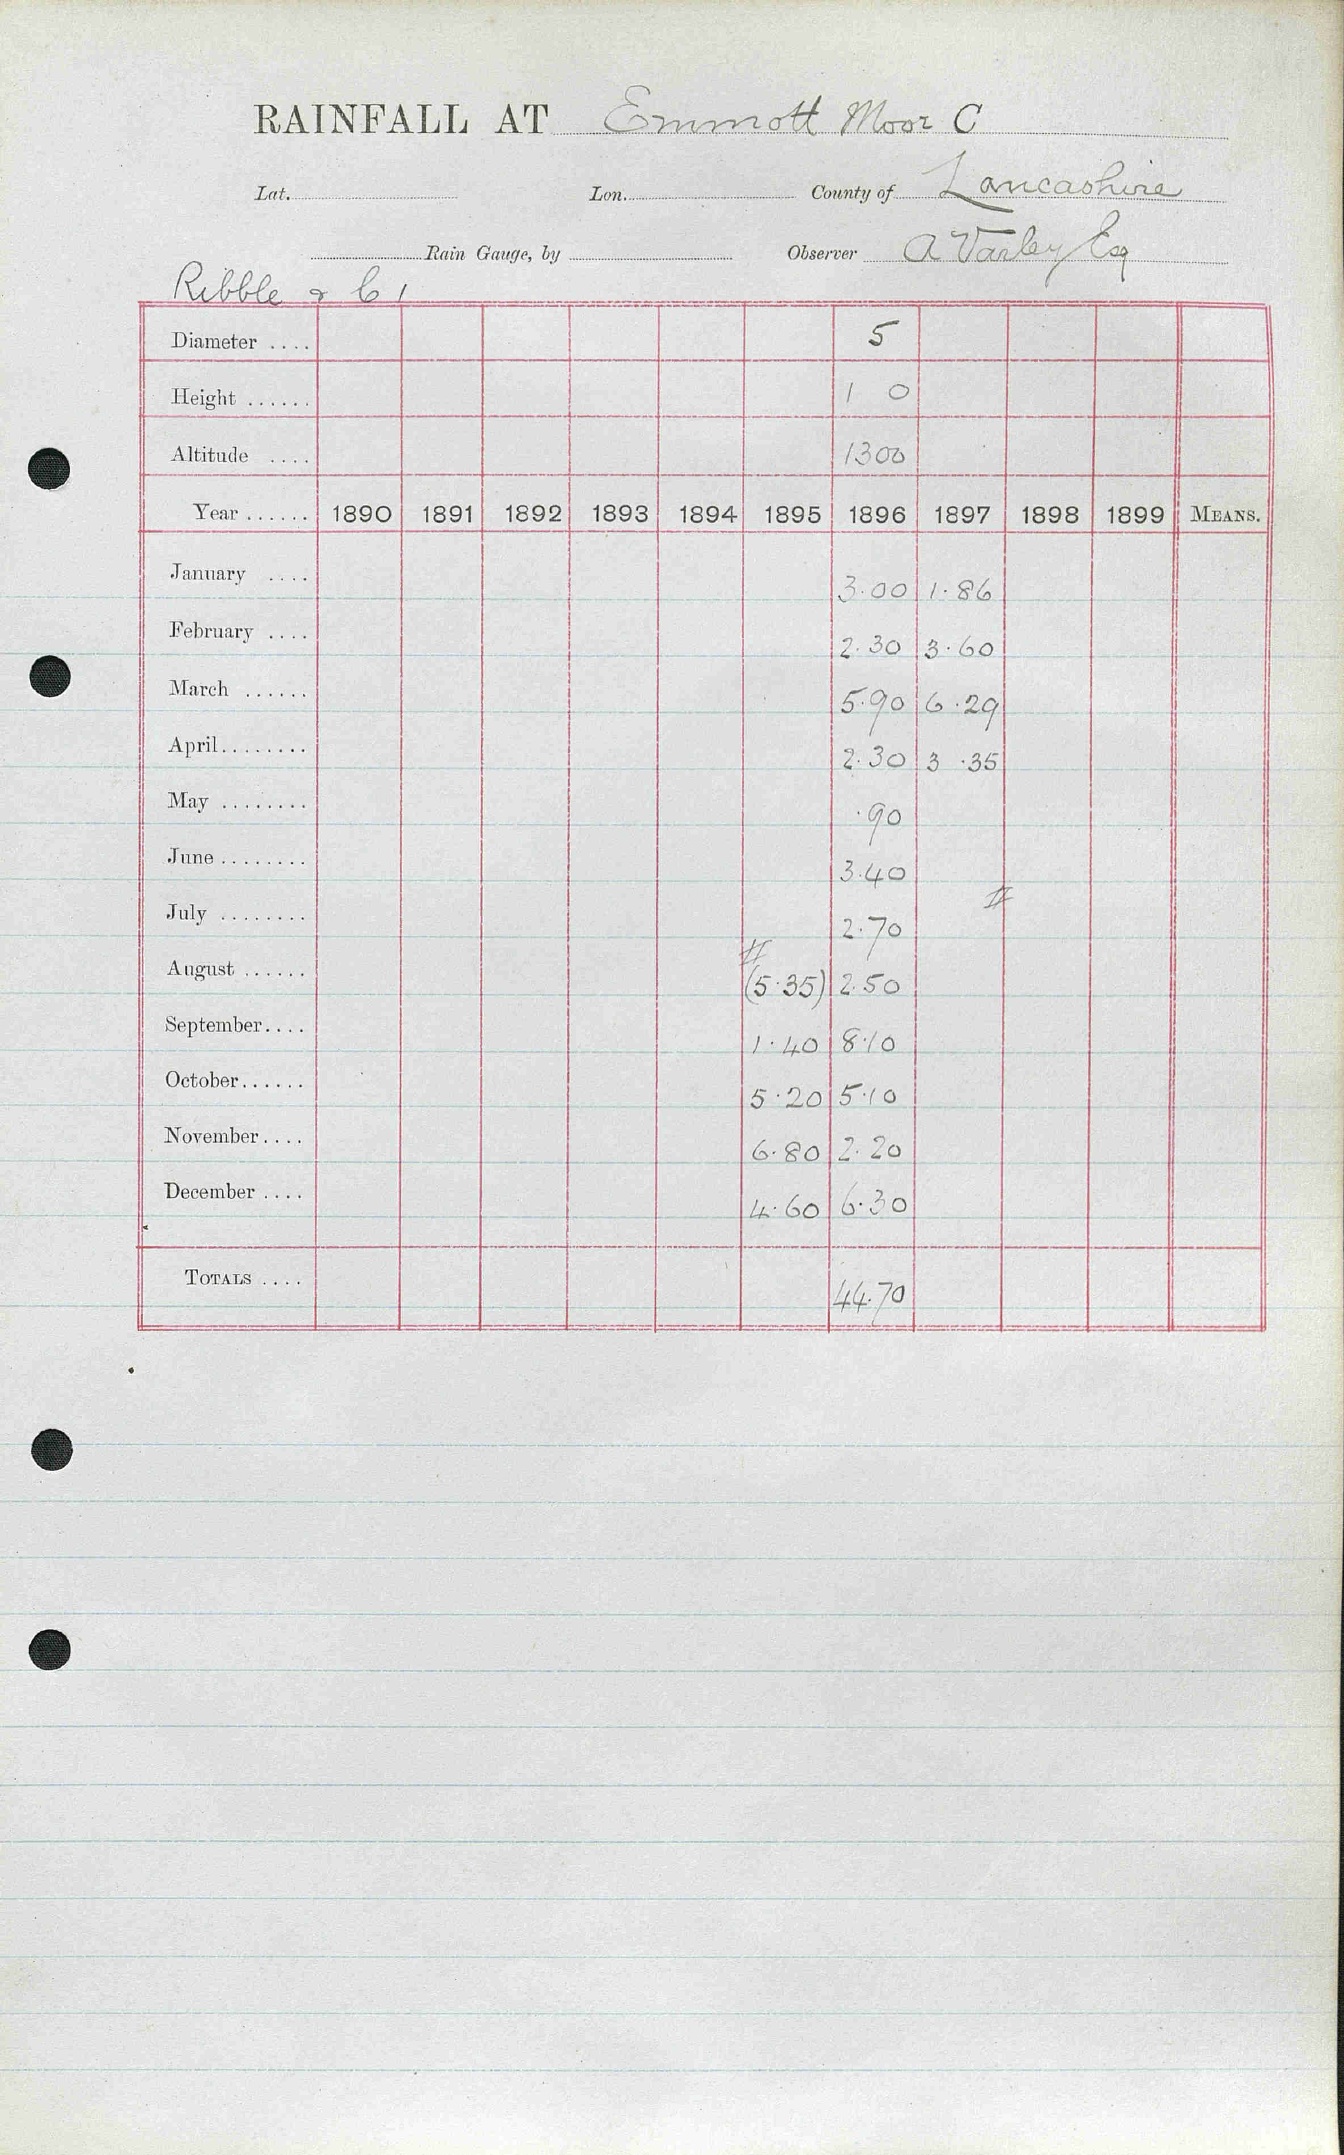 RAINFALL AT Emmott Moor C
Lat. Lon. County of Lancashire
Rain Gauge, by Observer A Varley Esq
Ribble &
Diameter .... 5
Height ...... 1 0
Altitude .... 1300
Year ...... 1890 1891 1892 1893 1894 1895 1896 1897 1898 1899 MEANS.
January .... 3.00 1.86
February .... 2.30 3.60
March ...... 5.90 6.29
April........ 2.30 3.35
May ........ .90
June ........ 3.40
July ........ 2.70
August ...... (5.35) 2.50
September.... 1.40 8.10
October...... 5.20 5.10
November.... 6.80 2.20
December .... 4.60 6.30
TOTALS .... 44.70